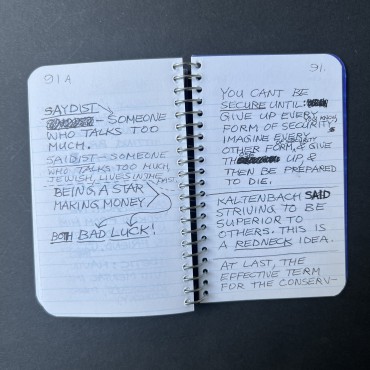 91A
SAYDIST
– SOMEONE
WHO TALKS TOO
MUCH.
SAIDIST – SOMEONE
WHO TALKS TOO MUCH,
JEWISH, LIVES IN THE
PAST.
BEING A STAR
MAKING MONEY
BOTH BAD LUCK!
91.
YOU CANT BE
SECURE UNTIL:
GIVE UP EVERY
FORM OF SECURITY
YOU KNOW,
IMAGINE EVERY
OTHER FORM, & GIVE
UP, &
THEN BE PREPARED
TO DIE.
KALTENBACH SAID
STRIVING TO BE
SUPERIOR TO
OTHERS. THIS IS
A REDNECK IDEA.
AT LAST, THE
EFFECTIVE TERM
FOR THE CONSERV-